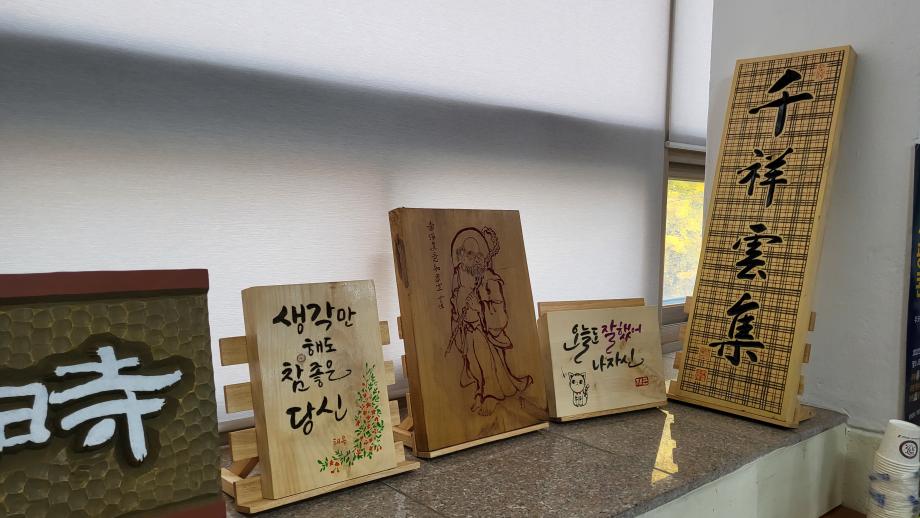 時
생각만
해도
참좋은
당신
오늘도 잘했어
나자신
千
祥
雲
集